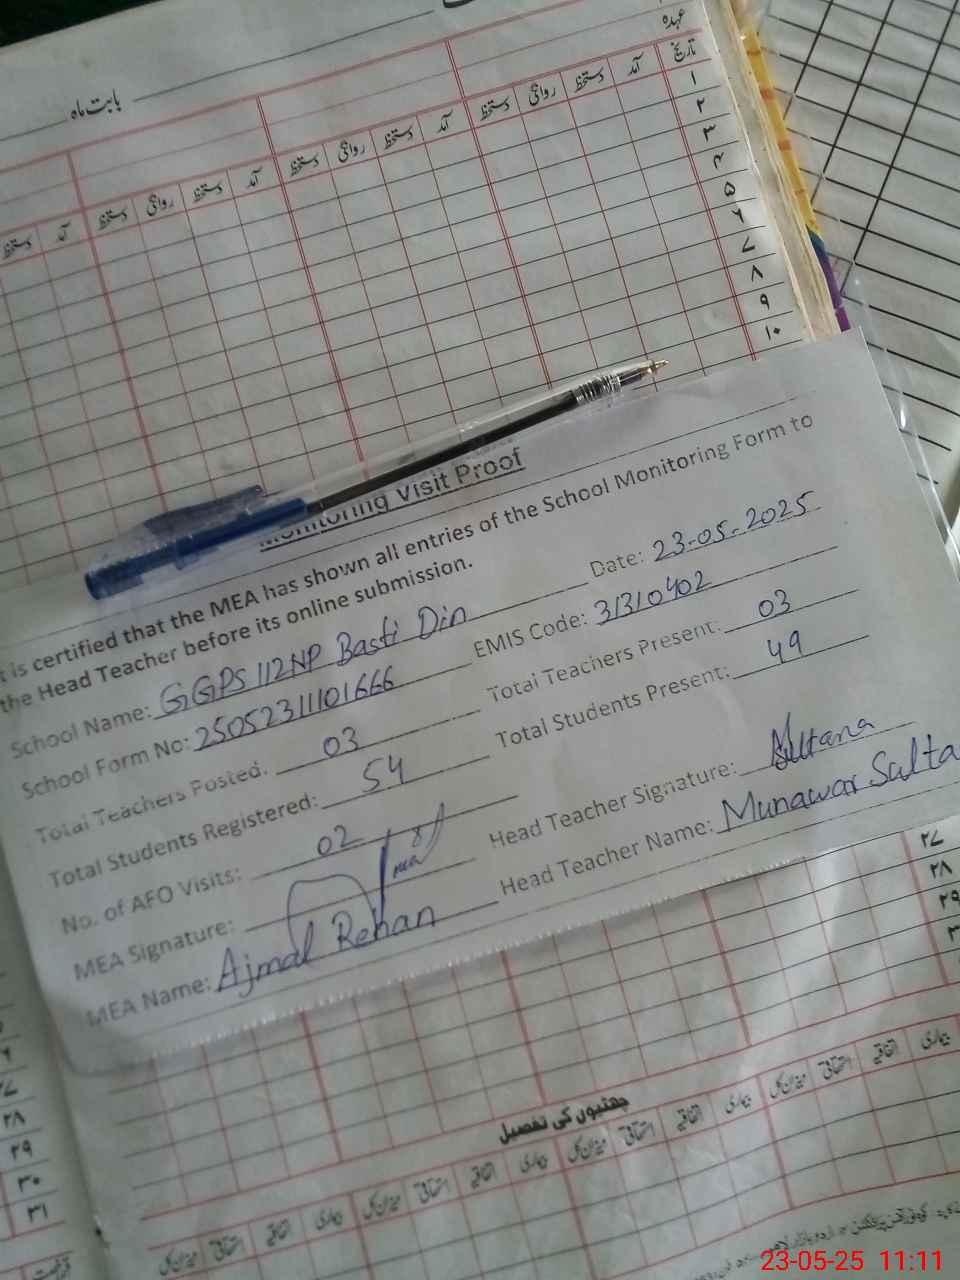 عہدہ
بابت ماہ
تاریخ
آمد دستخط روانگی دستخط آمد دستخط روانگی دستخط آمد دستخط روانگی دستخط آمد دستخط
۱
۲
۳
۴
۵
۶
۷
۸
۹
۱۰
Monitoring Visit Proof
t is certified that the MEA has shown all entries of the School Monitoring Form to
the Head Teacher before its online submission.
Date: 23-05-2025
School Name: GGPS 112NP Basti Din
EMIS Code: 31310402
School Form No: 25052311101666
Total Teachers Present: 03
Total Teachers Posted: 03
Total Students Present: 49
Total Students Registered: 54
No. of AFO Visits: 02
Head Teacher Signature: Sultana
MEA Signature:
Head Teacher Name: Munawar Sulta
MEA Name: Ajmal Rehan
۲۷
۲۸
۲۹
۳
۲۸
۲۹
۳۰
۳۱
بیماری اتفاقیہ استحقاقی میزان کل بیماری اتفاقیہ استحقاقی میزان کل
چھٹیوں کی تفصیل
بیماری اتفاقیہ استحقاقی میزان کل بیماری اتفاقیہ استحقاقی میزان کل
23-05-25 11:11